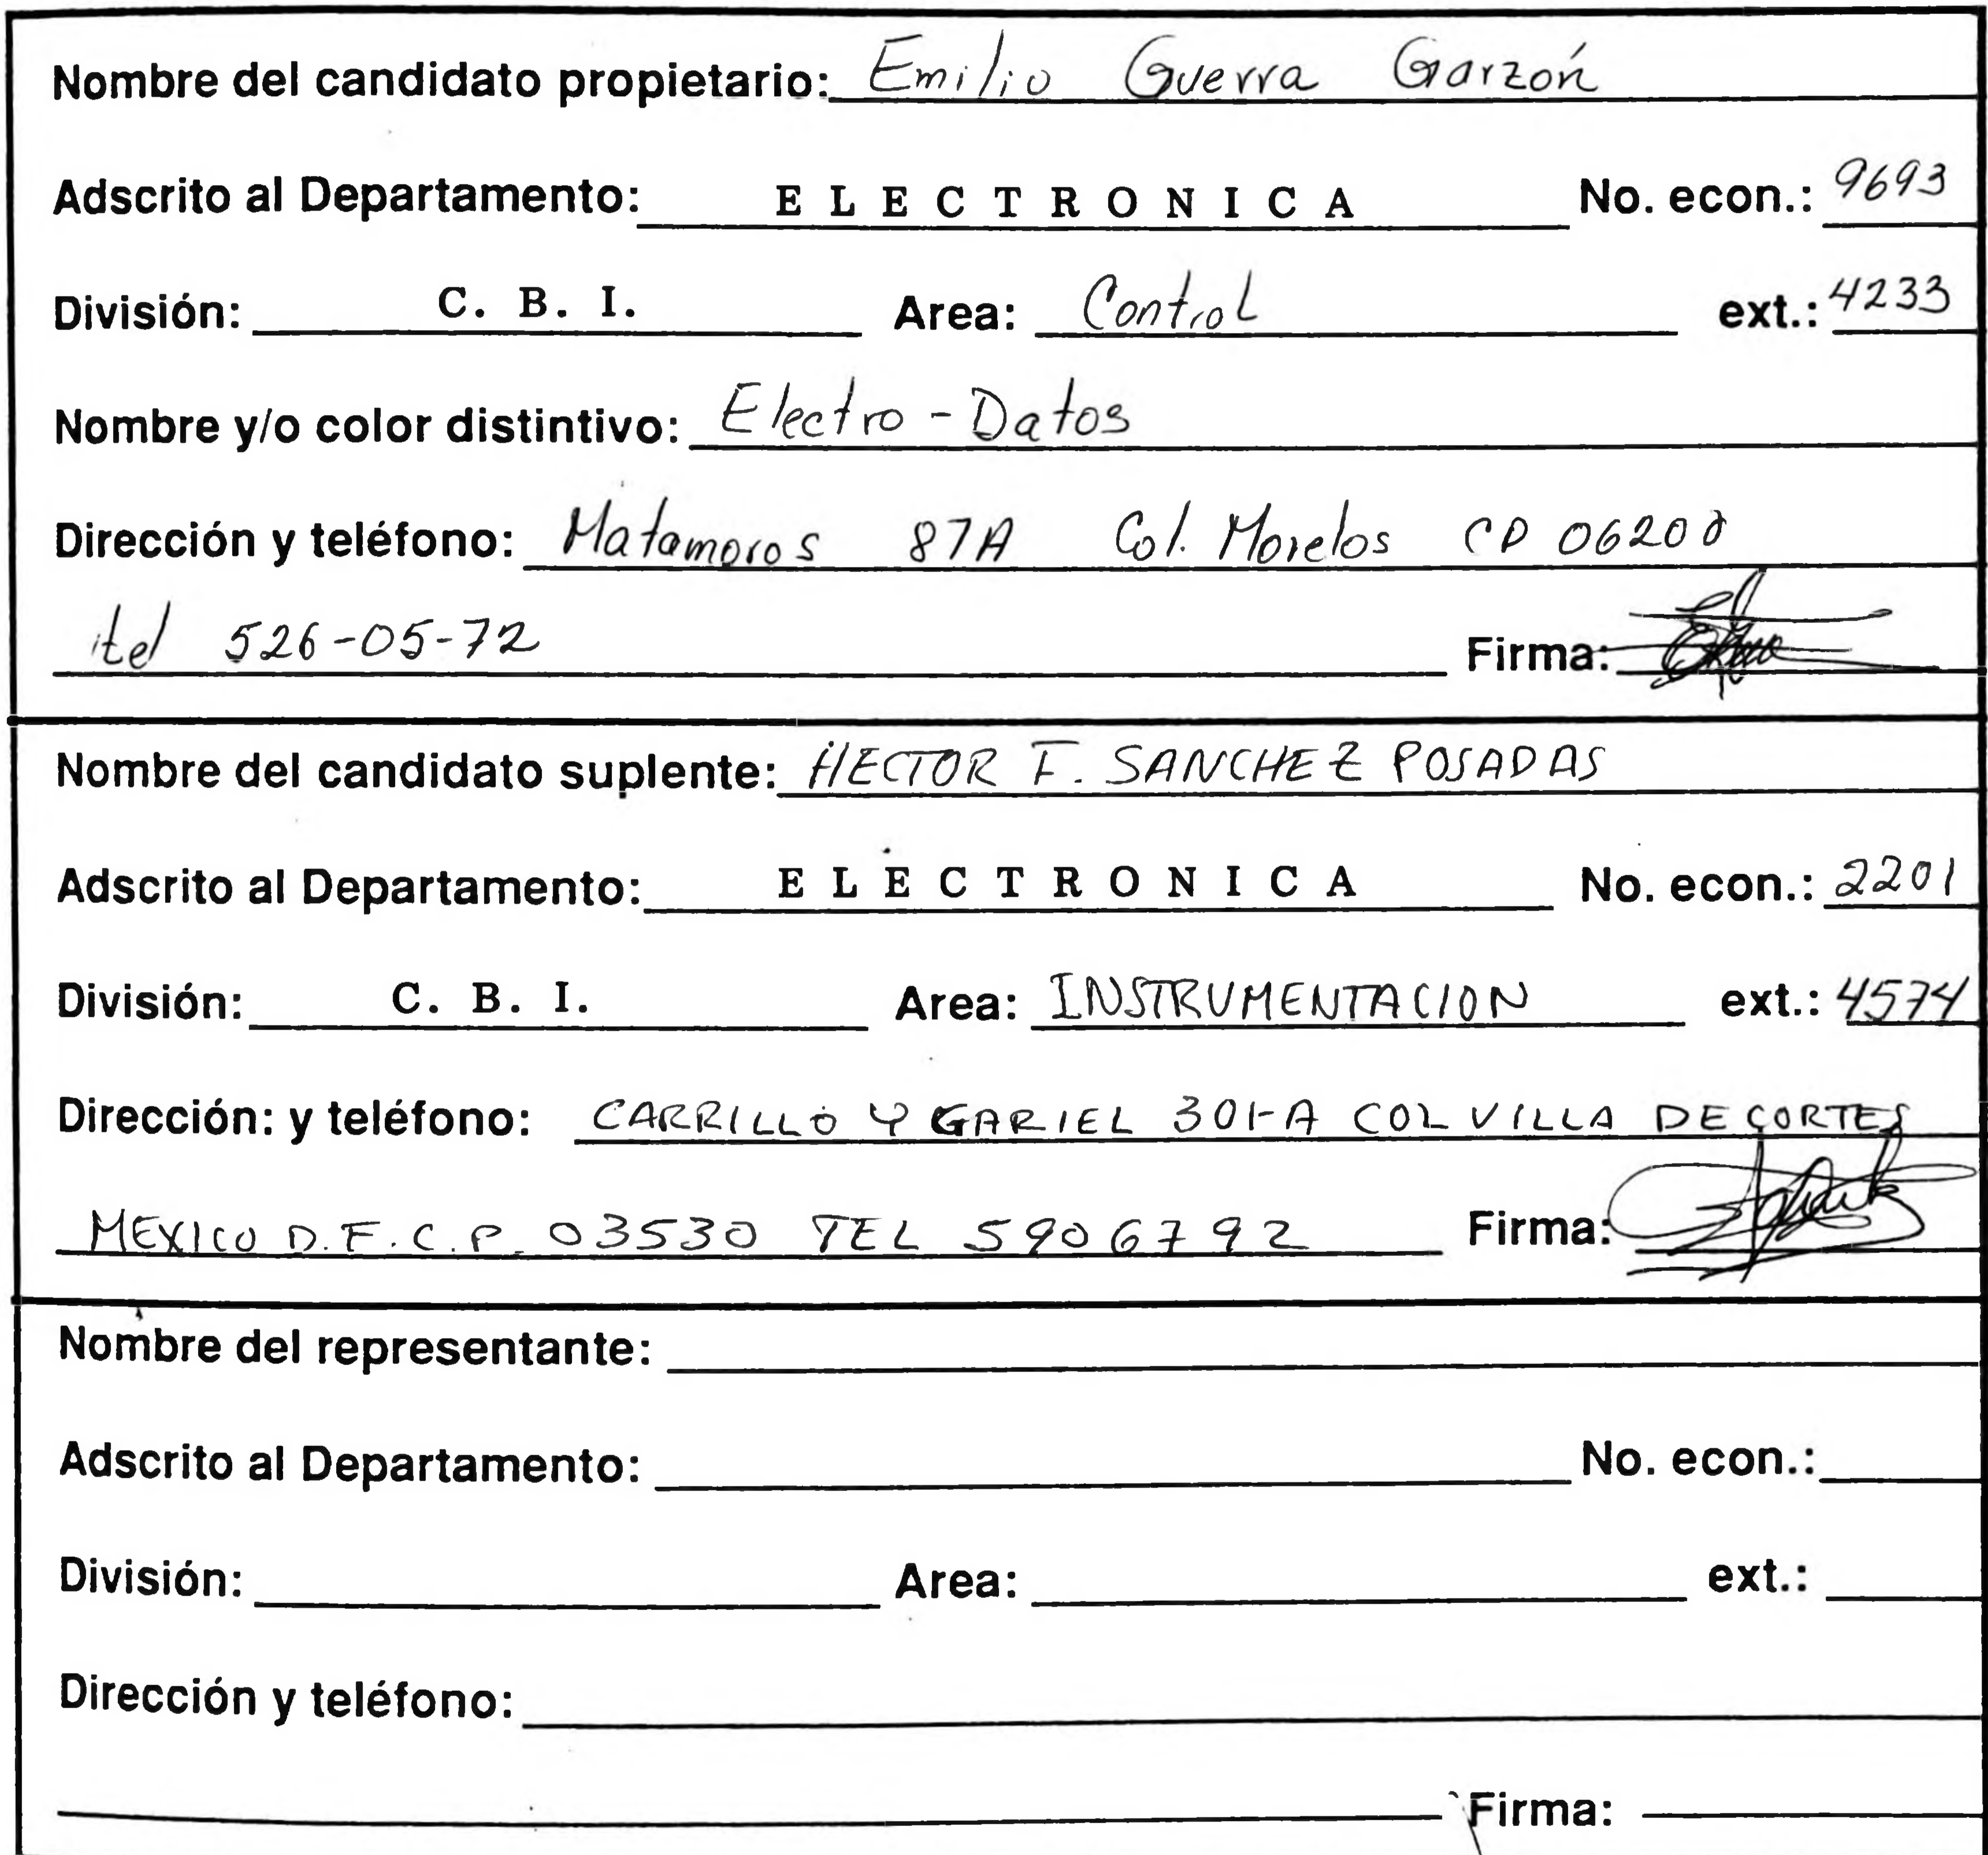 Nombre del candidato propietario: Emilio Guerra Garzón
Adscrito al Departamento: ELECTRONICA No. econ.: 9693
División: C. B. I. Area: Control ext.: 4233
Nombre y/o color distintivo: Electro-Datos
Dirección y teléfono: Matamoros 87A Col. Morelos CP 06200
tel 526-05-72 Firma:
Nombre del candidato suplente: HECTOR F. SANCHEZ POSADAS
Adscrito al Departamento: ELECTRONICA No. econ.: 2201
División: C. B. I. Area: INSTRUMENTACION ext.: 4574
Dirección: y teléfono: CARRILLO Y GARIEL 301-A COL VILLA DE CORTES
MEXICO D.F. C.P. 03530 TEL 5906792 Firma:
Nombre del representante:
Adscrito al Departamento: No. econ.:
División: Area: ext.:
Dirección y teléfono:
Firma: